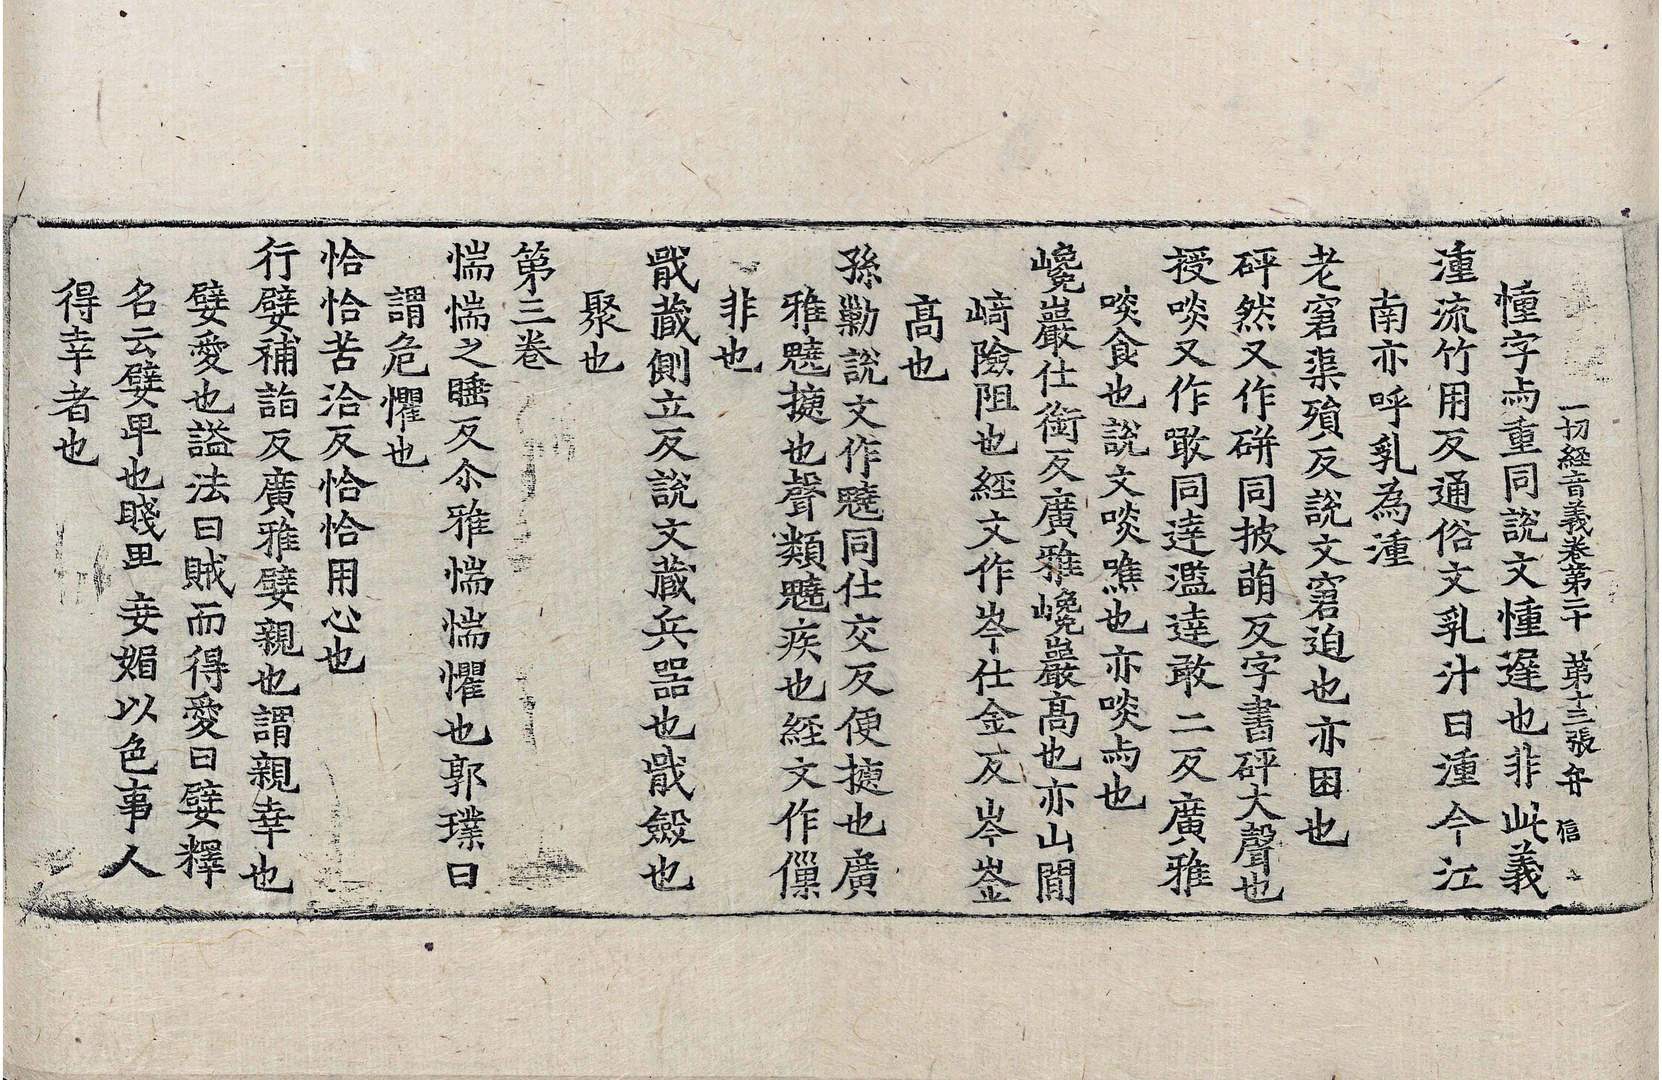 一切經音義卷第二十 第十三張 弁 信
㥖字与重同說文㥖遟也非此義
湩流竹用反通俗文乳汁曰湩今江
南亦呼乳為湩
老窘渠殞反說文窘迫也亦困也
砰然又作硑同披萌反字書砰大聲也
授啖又作噉同達濫達敢二反廣雅
啖食也說文啖噍也亦啖与也
巉巖仕銜反廣雅巉巖高也亦山間
崎險阻也經文作岑仕金反岑崟
髙也
孫勦說文作魑同仕交反便揵也廣
雅魑揵也聲類魑疾也經文作僄
非也
戢蔵側立反說文蔵兵器也戢斂也
聚也
第三卷
惴惴之睡反尒雅惴惴懼也郭璞曰
謂危懼也
恰恰苦洽反恰恰用心也
行嬖補詣反廣雅嬖親也謂親幸也
嬖愛也謚法曰賊而得愛曰嬖釋
名云嬖卑也賤里妾媚以色事人
得幸者也